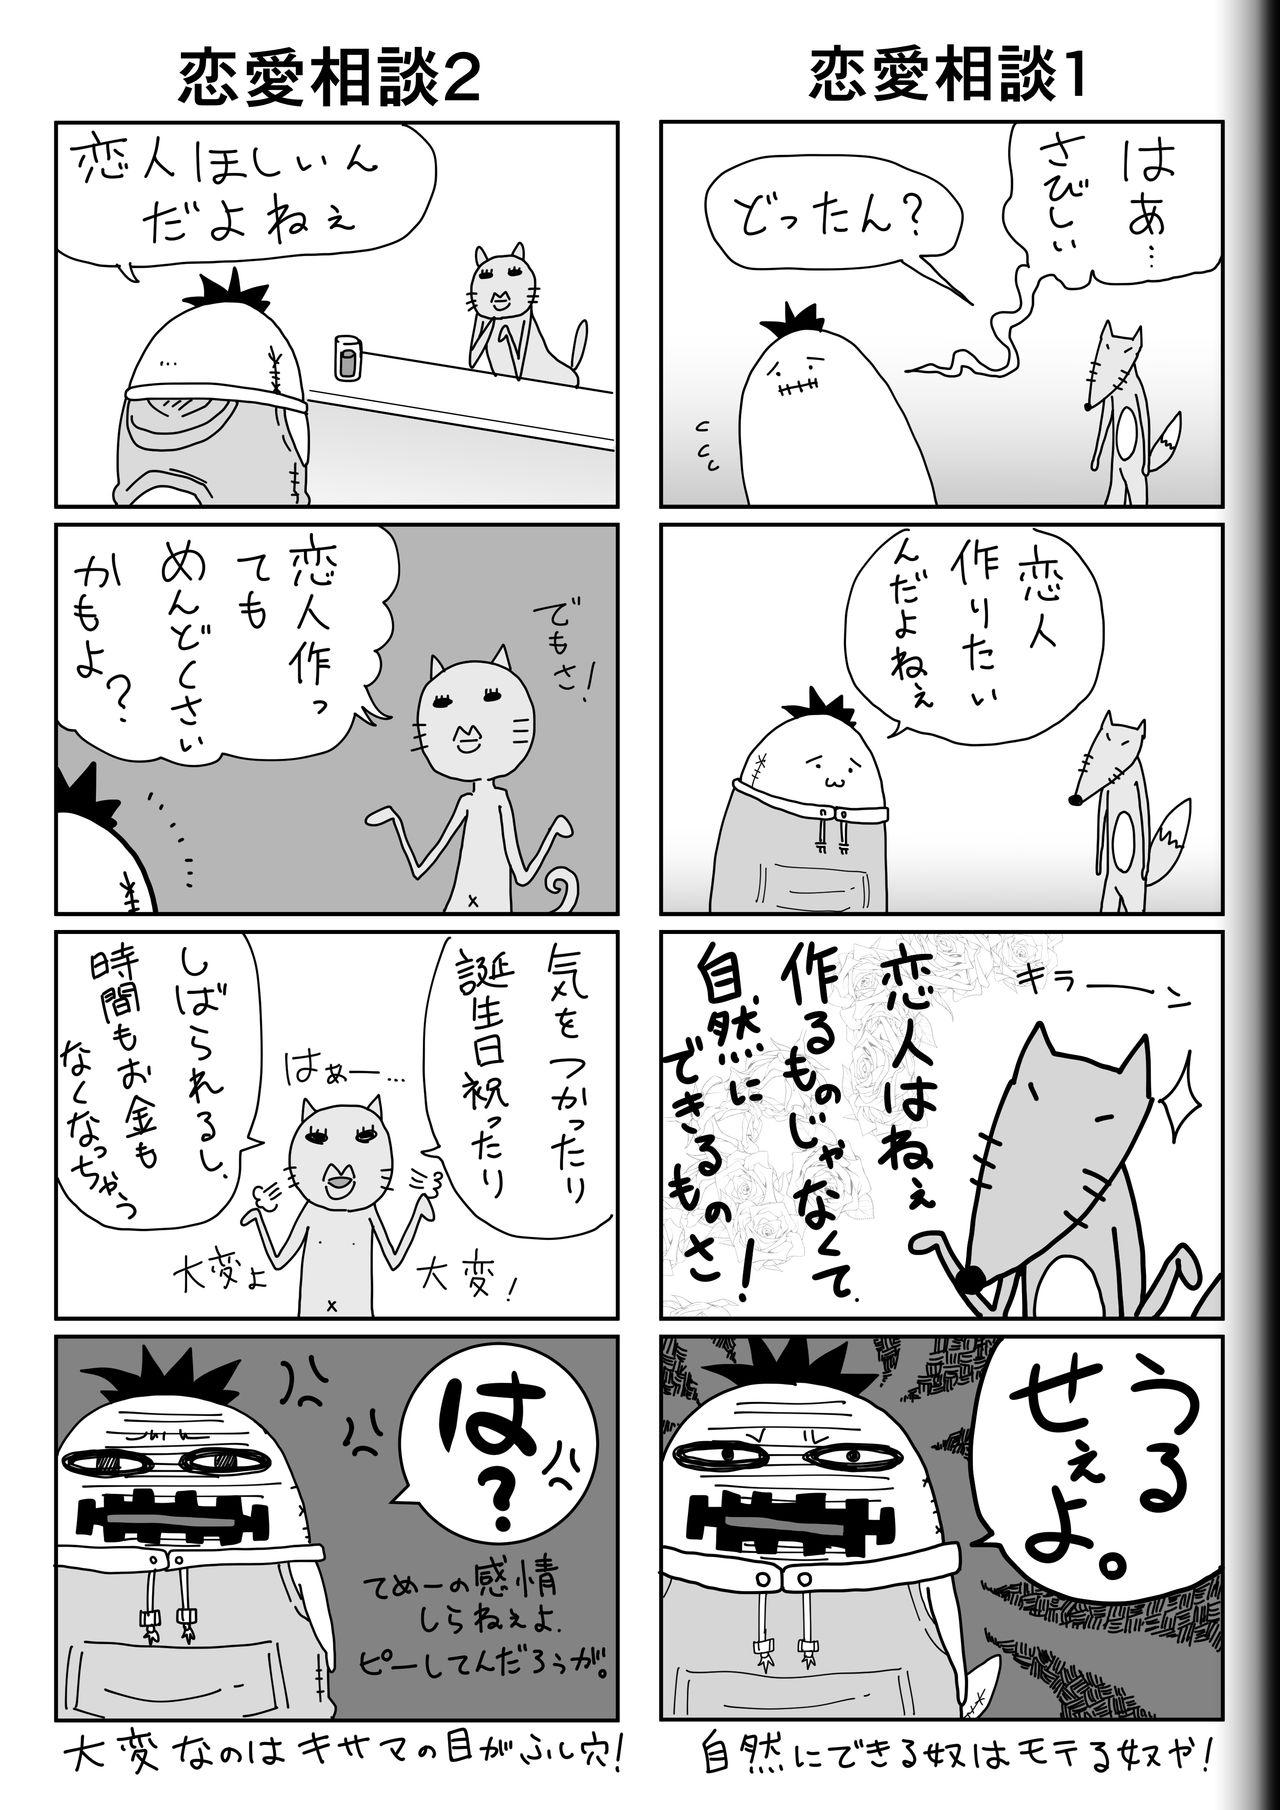 恋愛相談1
はぁ…
さびしい
どったん?
恋人
作りたい
んだよねぇ
キラーーン
恋人はねぇ
作るものじゃなくて、
自然に
できるものさ!
うる
せぇ
よ。
自然にできる奴はモテる奴や!
恋愛相談2
恋人ほしいん
だよねぇ
でもさ!
恋人作っ
ても
めんどくさい
かもよ?
気をつかったり
誕生日祝ったり
はぁー…
しばられるし、
時間もお金も
なくなっちゃう
大変!
大変よ
は?
てめーの感情
しらねぇよ、
ピーしてんだろぅが。
大変なのはキサマの目がふし穴!